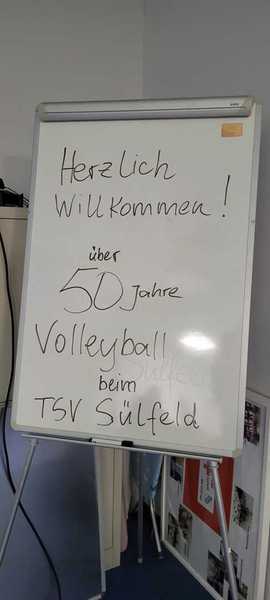 Herzlich
Willkommen!
über
50 Jahre
Volleyball
beim
TSV Sülfeld